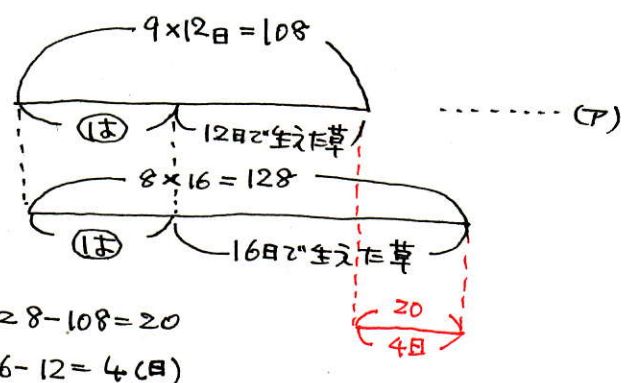 9×12日=108
は 12日で生えた草 (ア)
8×16=128
は 16日で生えた草
28-108=20
20
6-12=4(日)
4日